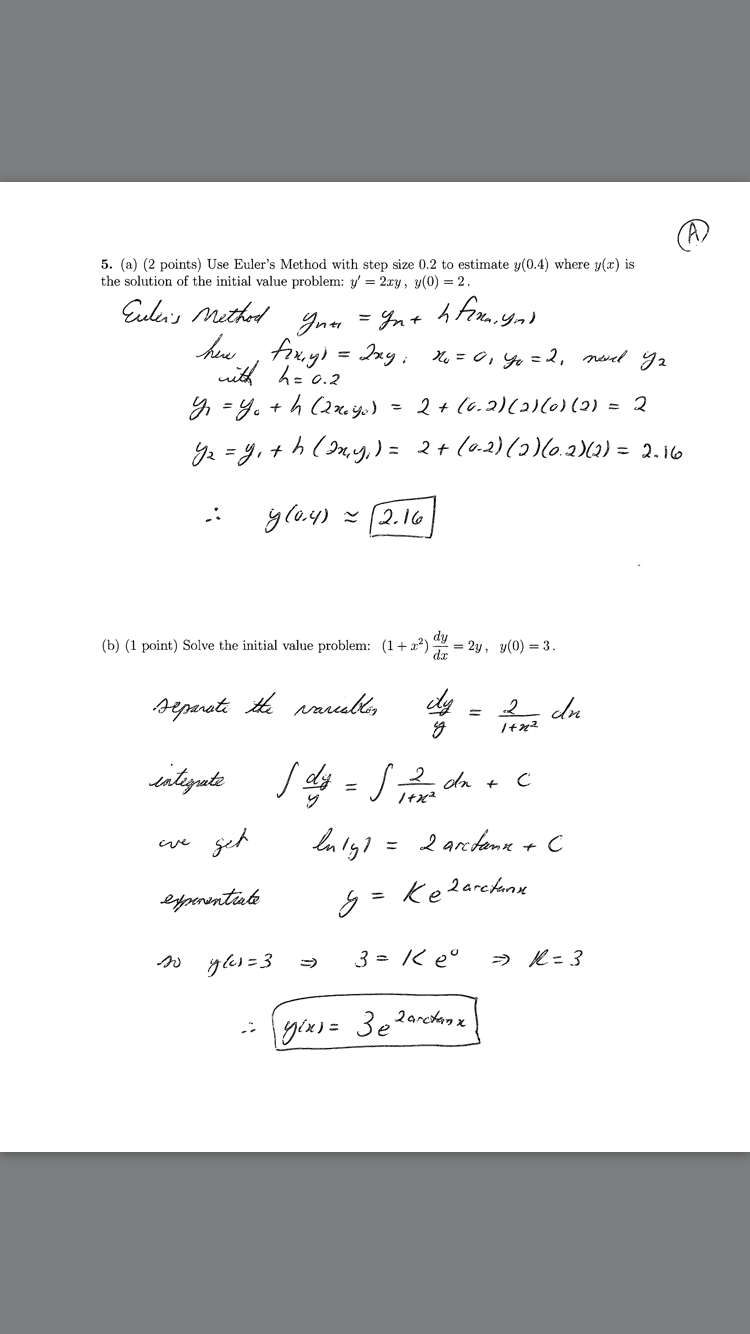 (A)
5. (a) (2 points) Use Euler's Method with step size 0.2 to estimate y(0.4) where y(x) is
the solution of the initial value problem: y′ = 2xy, y(0) = 2.
Euler's Method yₙ₊₁ = yₙ + h f(xₙ, yₙ)
here f(x,y) = 2xy, x₀ = 0, y₀ = 2, need y₂
with h = 0.2
y₁ = y₀ + h (2x₀y₀) = 2 + (0.2)(2)(0)(2) = 2
y₂ = y₁ + h (2x₁y₁) = 2 + (0.2)(2)(0.2)(2) = 2.16
∴ y(0.4) ≈ 2.16
(b) (1 point) Solve the initial value problem: (1 + x²) dy/dx = 2y, y(0) = 3.
separate the variables dy/y = 2/(1+x²) dx
integrate ∫ dy/y = ∫ 2/(1+x²) dx + C
we get ln|y| = 2 arctan x + C
exponentiate y = K e^(2 arctan x)
so y(0) = 3 ⇒ 3 = K e⁰ ⇒ K = 3
∴ y(x) = 3e^(2 arctan x)